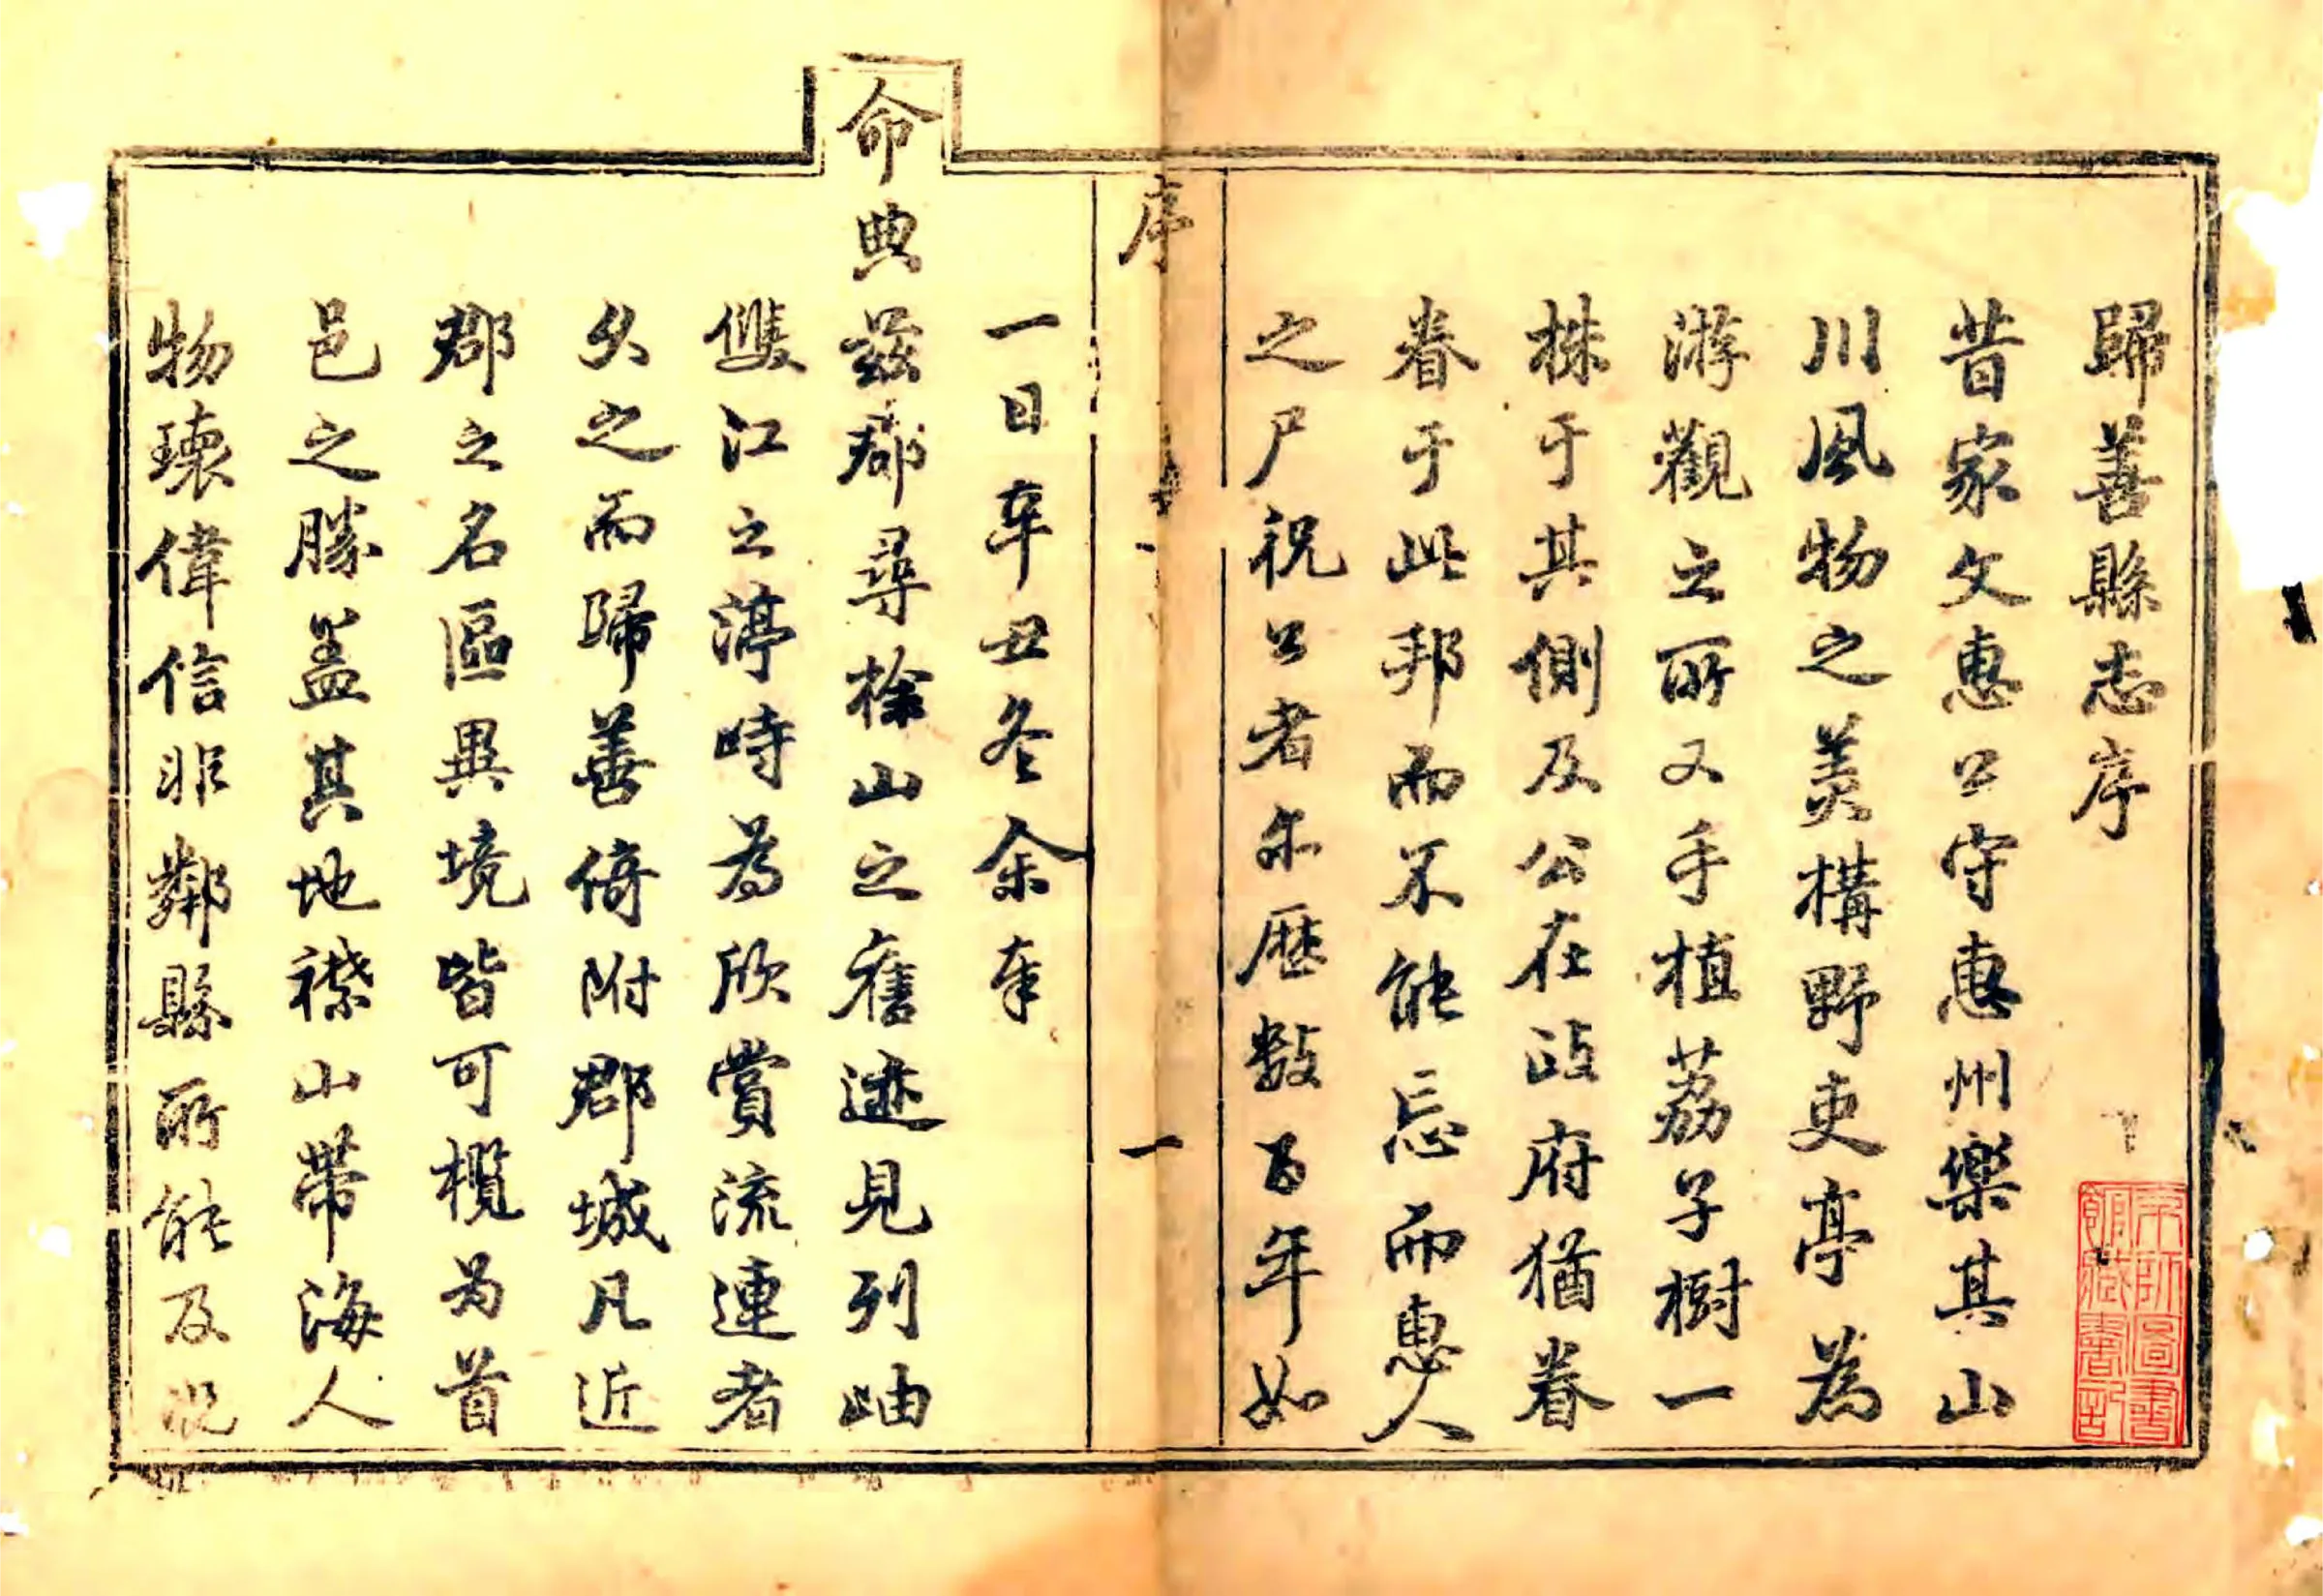 歸善縣志序
昔家文惠公守惠州樂其山
川風物之美構野吏亭為
游觀之所又手植荔子樹一
株于其側及公在政府猶眷
眷于此邦而不能忘而惠人
之尸祝公者尓歷數百年如
序
一
一日辛丑冬余奉
命典茲郡尋梌山之舊迹見列岫
雙江之渟峙為欣賞流連者
久之而歸善倚附郡城凡近
郡之名區異境皆可攬為首
邑之勝盖其地襟山帶海人
物瓌偉信非鄰縣所能及況
京師圖書
館藏書記